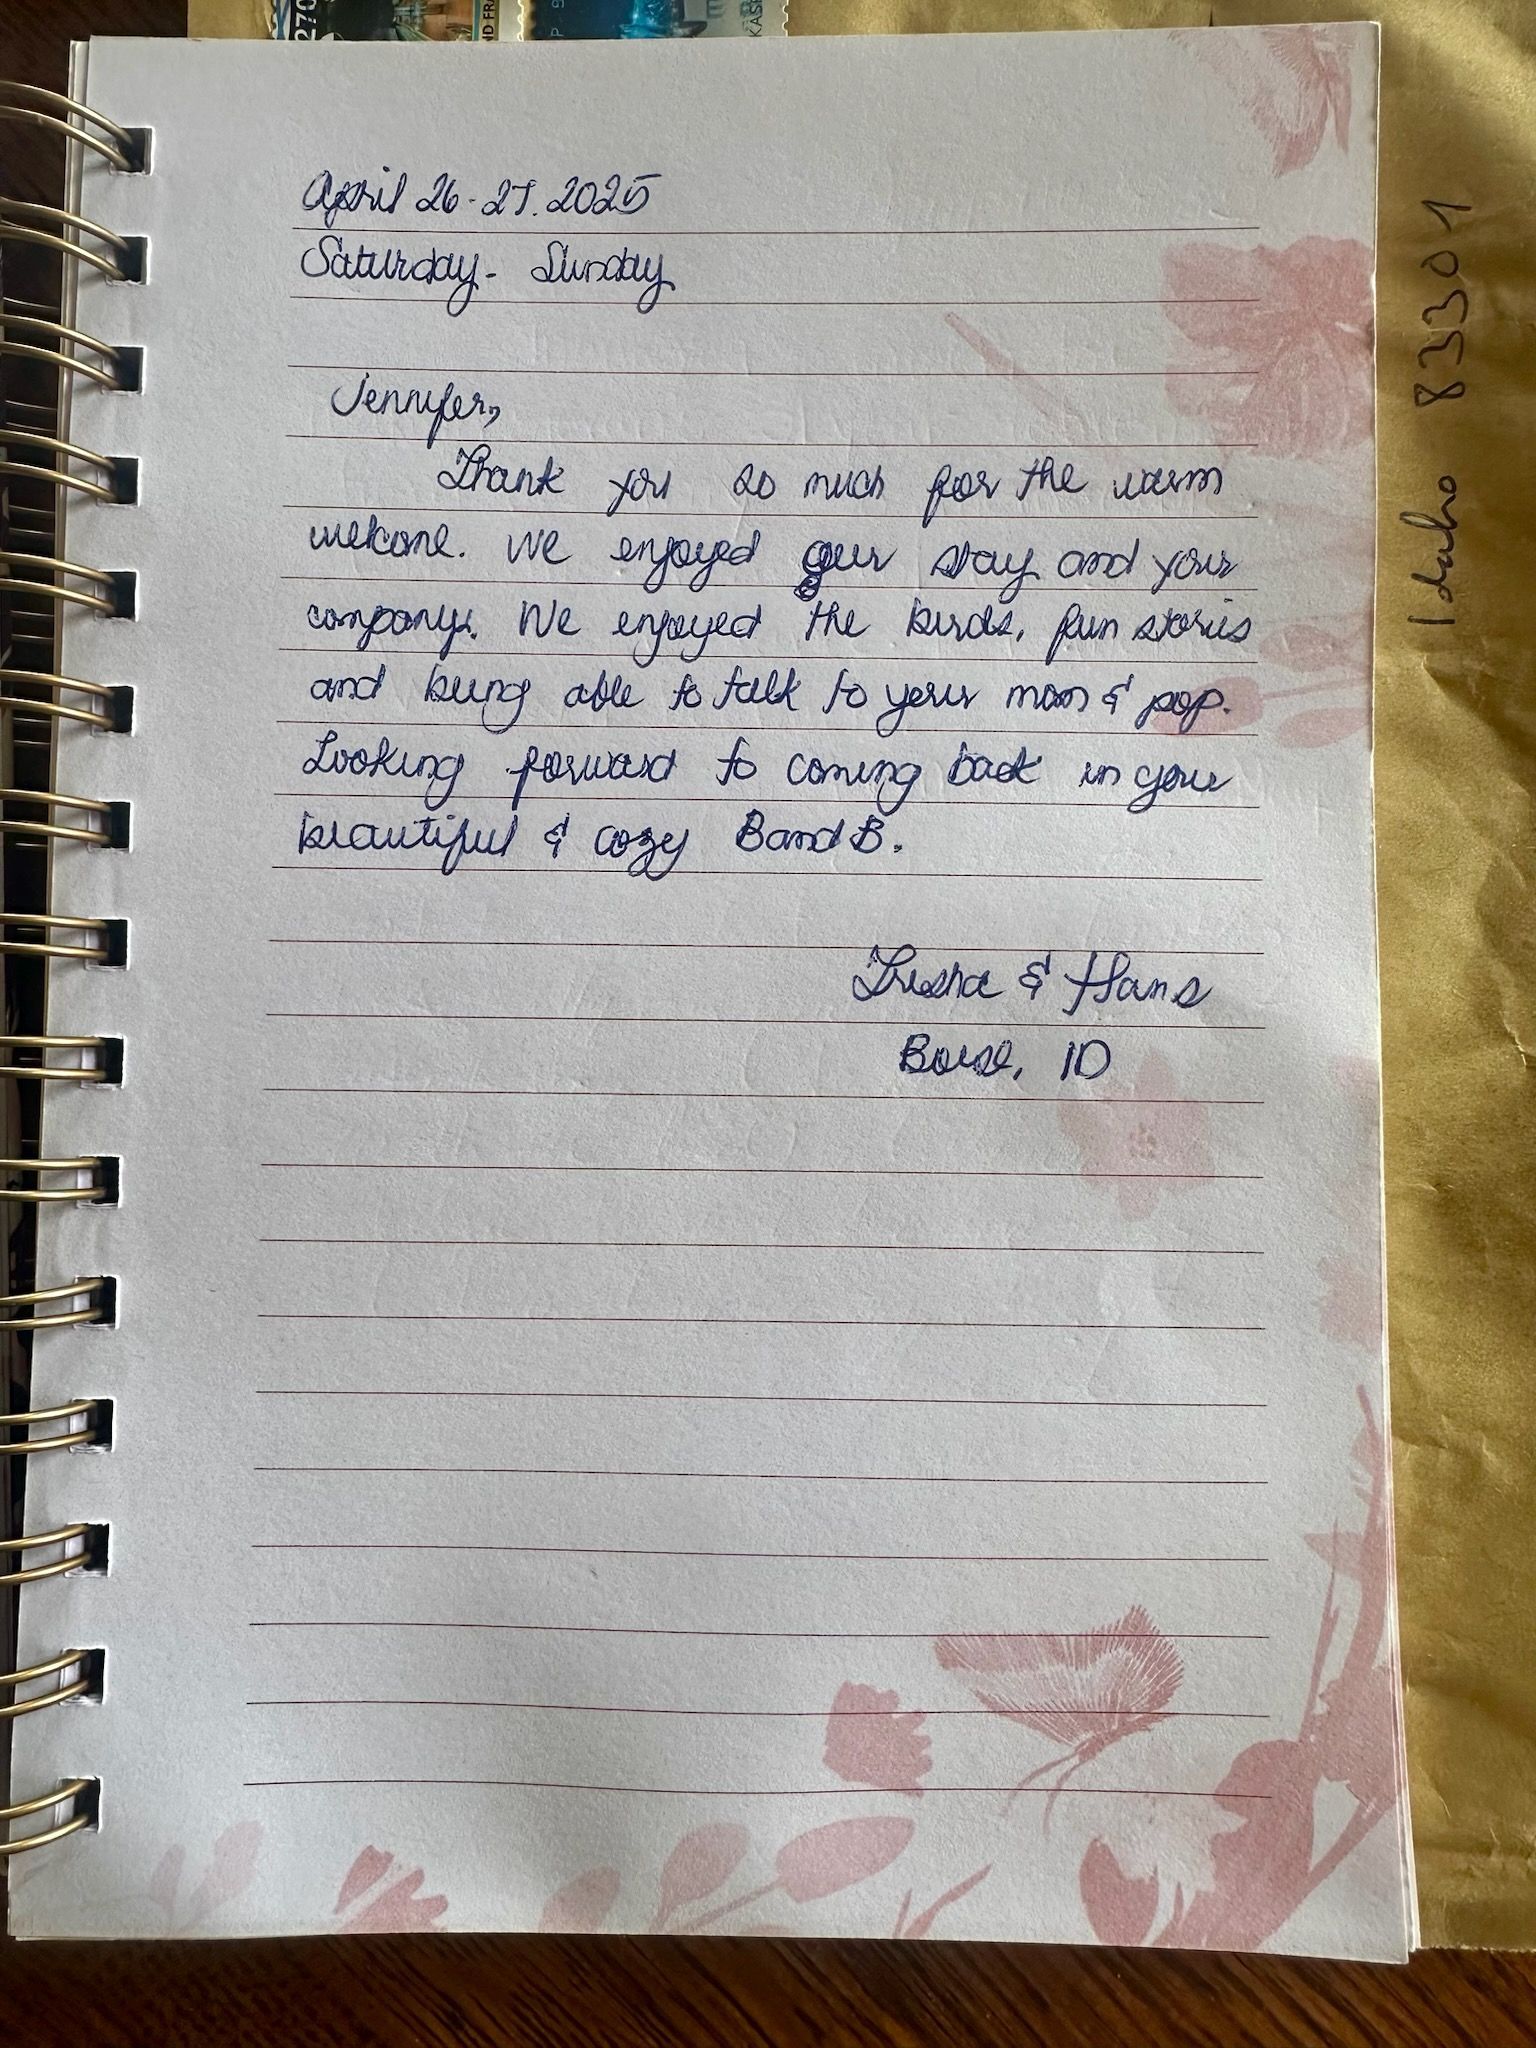 270
ND FRA
P 9
KAS
April 26-27. 2025
Saturday- Sunday
Jennyfer,
Thank you so much for the warm
welcome. We enjoyed our stay and your
company. We enjoyed the birds, fun stories
and being able to talk to your mom & pop.
Looking forward to coming back in your
beautiful & cozy B and B.
Trisha & Hans
Boise, ID
Idaho 83301